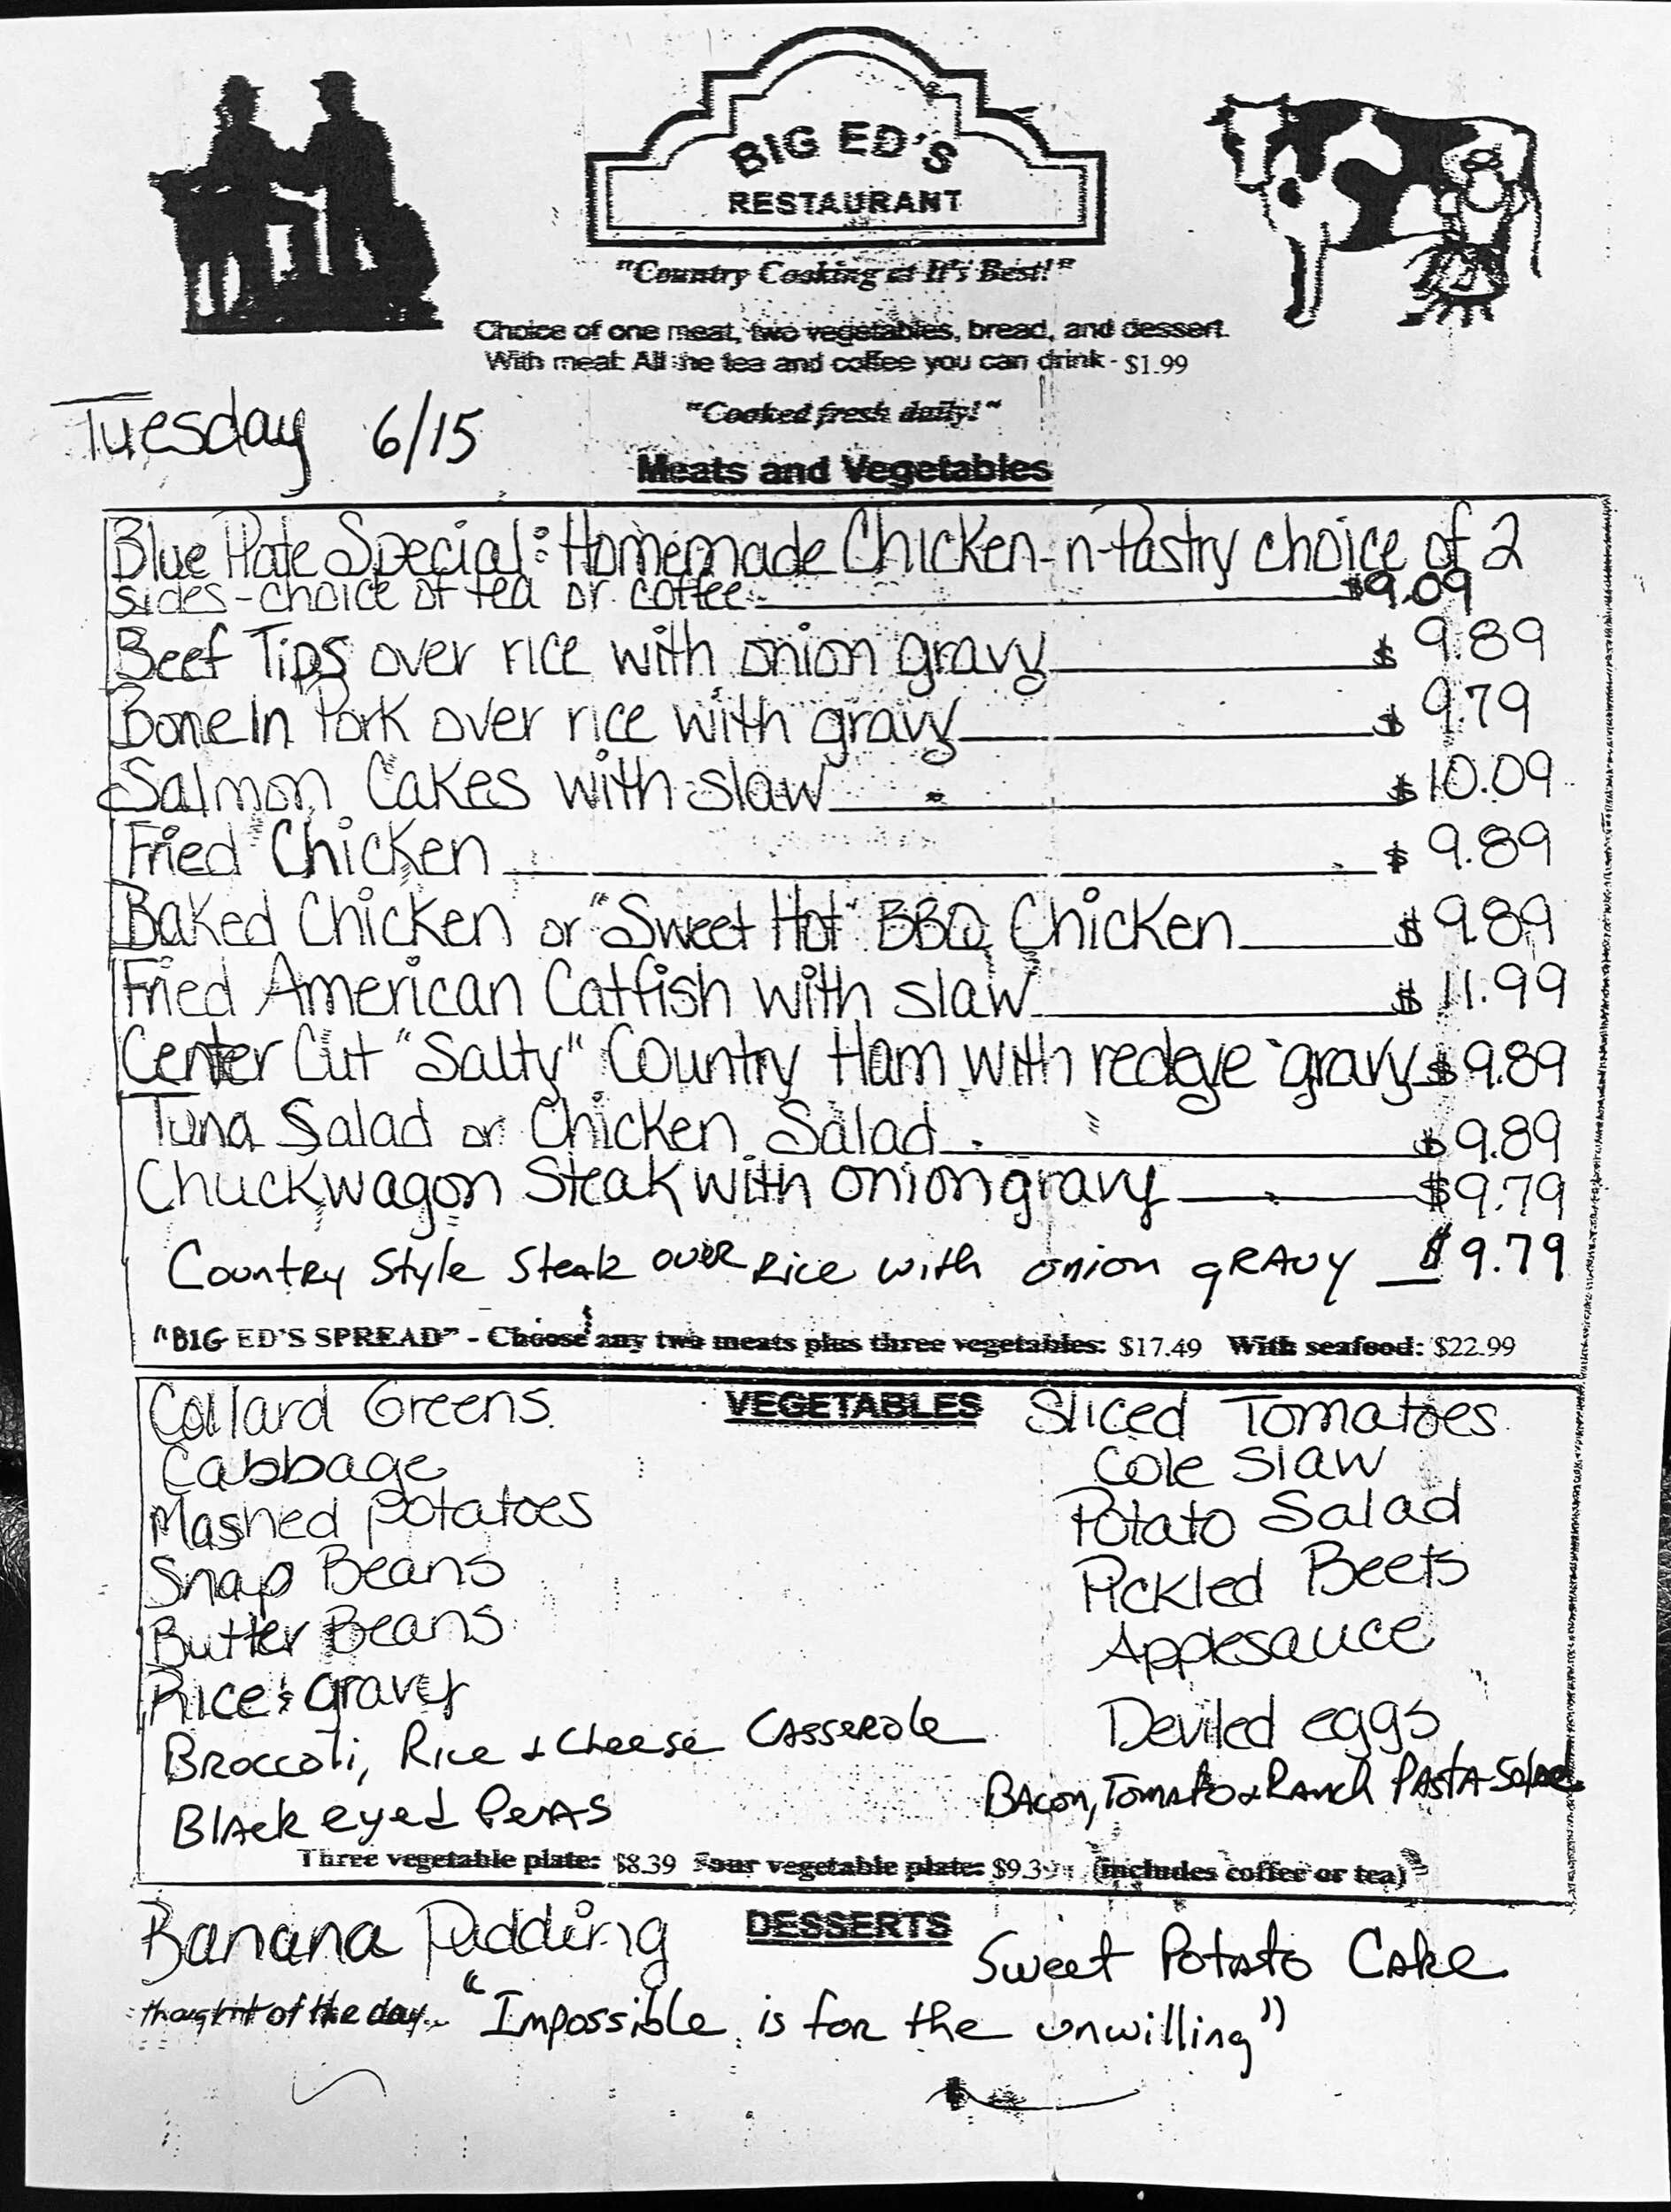 BIG ED'S
RESTAURANT
"Country Cooking at It's Best!"
Choice of one meat, two vegetables, bread, and dessert.
With meat: All the tea and coffee you can drink - $1.99
"Cooked fresh daily!"
Tuesday 6/15
Meats and Vegetables
Blue Plate Special: Homemade Chicken-n-Pastry choice of 2
sides-choice of tea or coffee $9.09
Beef Tips over rice with onion gravy $9.89
Bone In Pork over rice with gravy $9.79
Salmon Cakes with slaw $10.09
Fried Chicken $9.89
Baked Chicken or "Sweet Hot" BBQ Chicken $9.89
Fried American Catfish with slaw $11.99
Center Cut "Salty" Country Ham with redeye gravy $9.89
Tuna Salad or Chicken Salad $9.89
Chuckwagon Steak with onion gravy $9.79
Country Style Steak over Rice with onion gravy $9.79
"BIG ED'S SPREAD" - Choose any two meats plus three vegetables: $17.49 With seafood: $22.99
VEGETABLES
Collard Greens
Cabbage
Mashed potatoes
Snap Beans
Butter Beans
Rice & gravy
Broccoli, Rice & Cheese Casserole
Black eyed Peas
Sliced Tomatoes
Cole Slaw
Potato Salad
Pickled Beets
Applesauce
Deviled eggs
Bacon, Tomato & Ranch Pasta Salad
Three vegetable plate: $8.39 Four vegetable plate: $9.39 (includes coffee or tea)
DESSERTS
Banana Pudding
Sweet Potato Cake
thought of the day... "Impossible is for the unwilling"